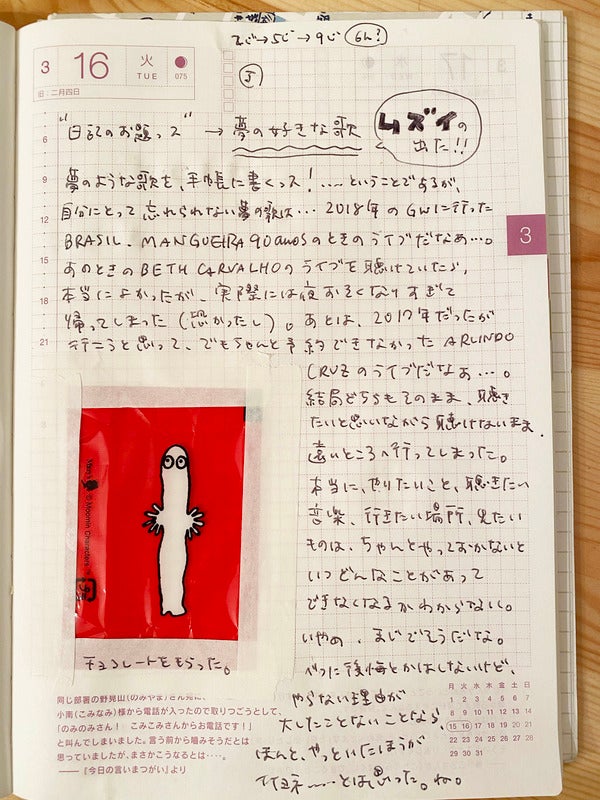 3 16 火 TUE 075
旧:二月四日
5
"日記のお題って" → 夢の好きな歌
ムズイの出た!!
夢のような歌を、手帳に書くっス!……ということであるが、
自分にとって忘れられない夢の歌は…2018年のGWに行った
BRASIL. MANGUEIRA 90 anosのときのライブだなぁ…。
あのときのBETH CARVALHOのライブを聴けていたら、
本当によかったが、実際には夜おそくなりすぎて
帰ってしまった(恐かったし)。あとは、2017年だったが
行こうと思って、でもちゃんと予約できなかったARLINDO
CRUZのライブだなぁ…。
結局どちらもそのまま、聴き
たいと思いながら聴けないまま、
遠いところへ行ってしまった。
本当に、やりたいこと、聴きたい
音楽、行きたい場所、見たい
ものは、ちゃんとやっておかないと
いつどんなことがあって
できなくなるかわからない。
いやぁ、まじでそうだな。
べつに後悔とかはしないけど、
やらない理由が
大したことないことなら、
ほんと、やっといたほうが
とは思った。ね。
3
6
9
12
15
18
21
© Moomin Characters™
プラ
チョコレートをもらった。
同じ部署の野見山(のみやま)さん宛に、
小南(こみなみ)様から電話が入ったので取りつごうとして、
「のみのみさん! こみこみさんからお電話です!」
と叫んでしまいました。言う前から噛みそうだとは
思っていましたが、まさかこうなるとは‥‥。
——『今日の言いまつがい』より
月 火 水 木 金 土 日
1 2 3 4 5 6 7
8 9 10 11 12 13 14
15 16 17 18 19 20 21
22 23 24 25 26 27 28
29 30 31